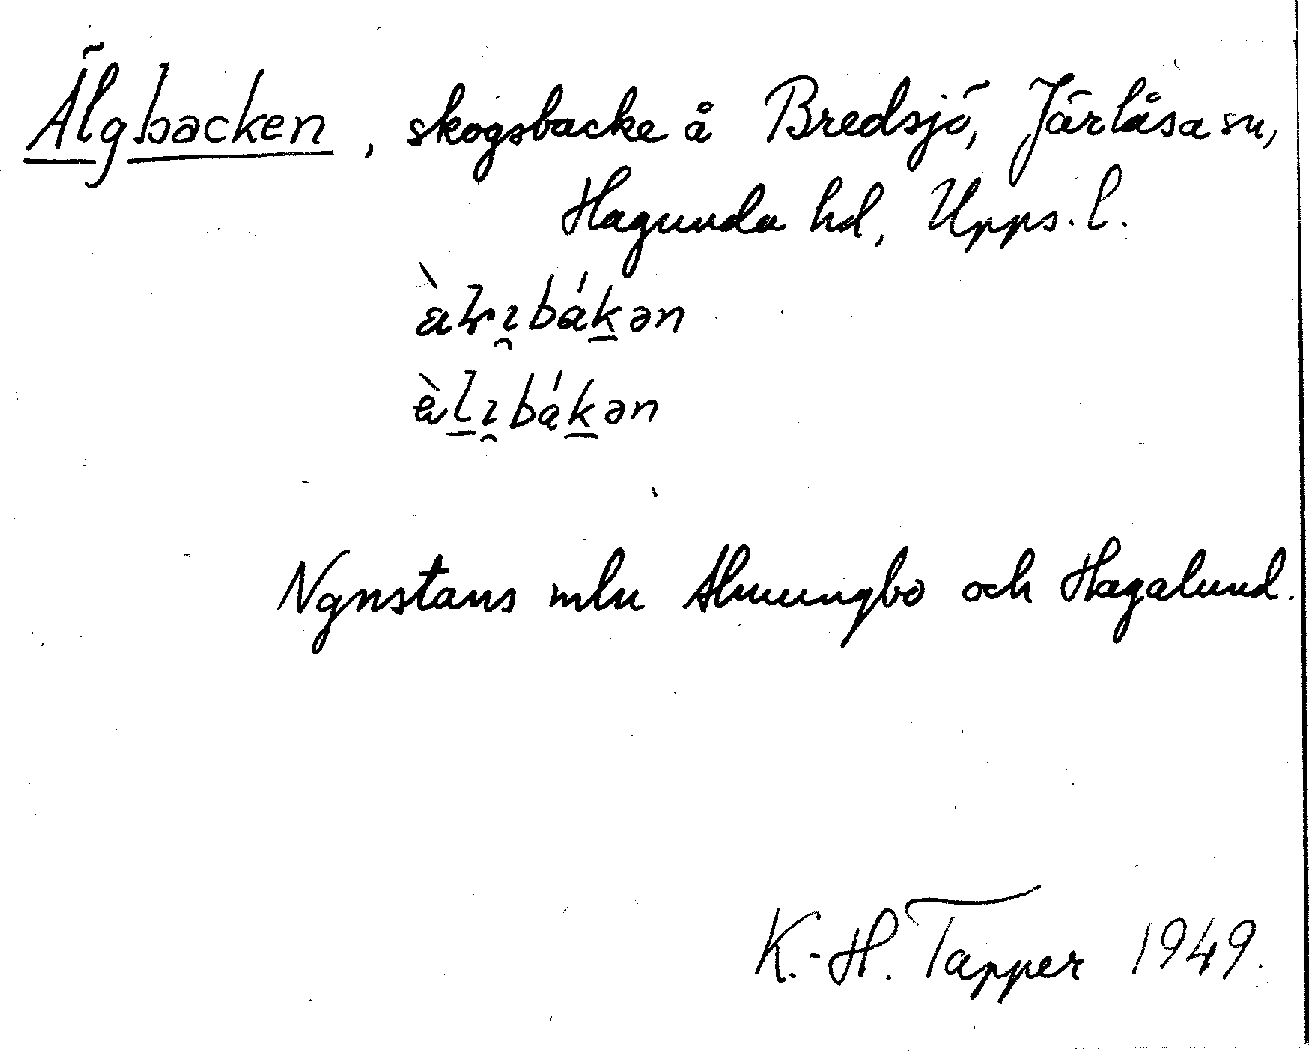 Älgbacken, skogsbacke å Bredsjö, Järlåsa sn,
Hagunda hd, Upps. l.
Ngnstans mln Almungbo och Hagalund.
K.-H. Tapper 1949.